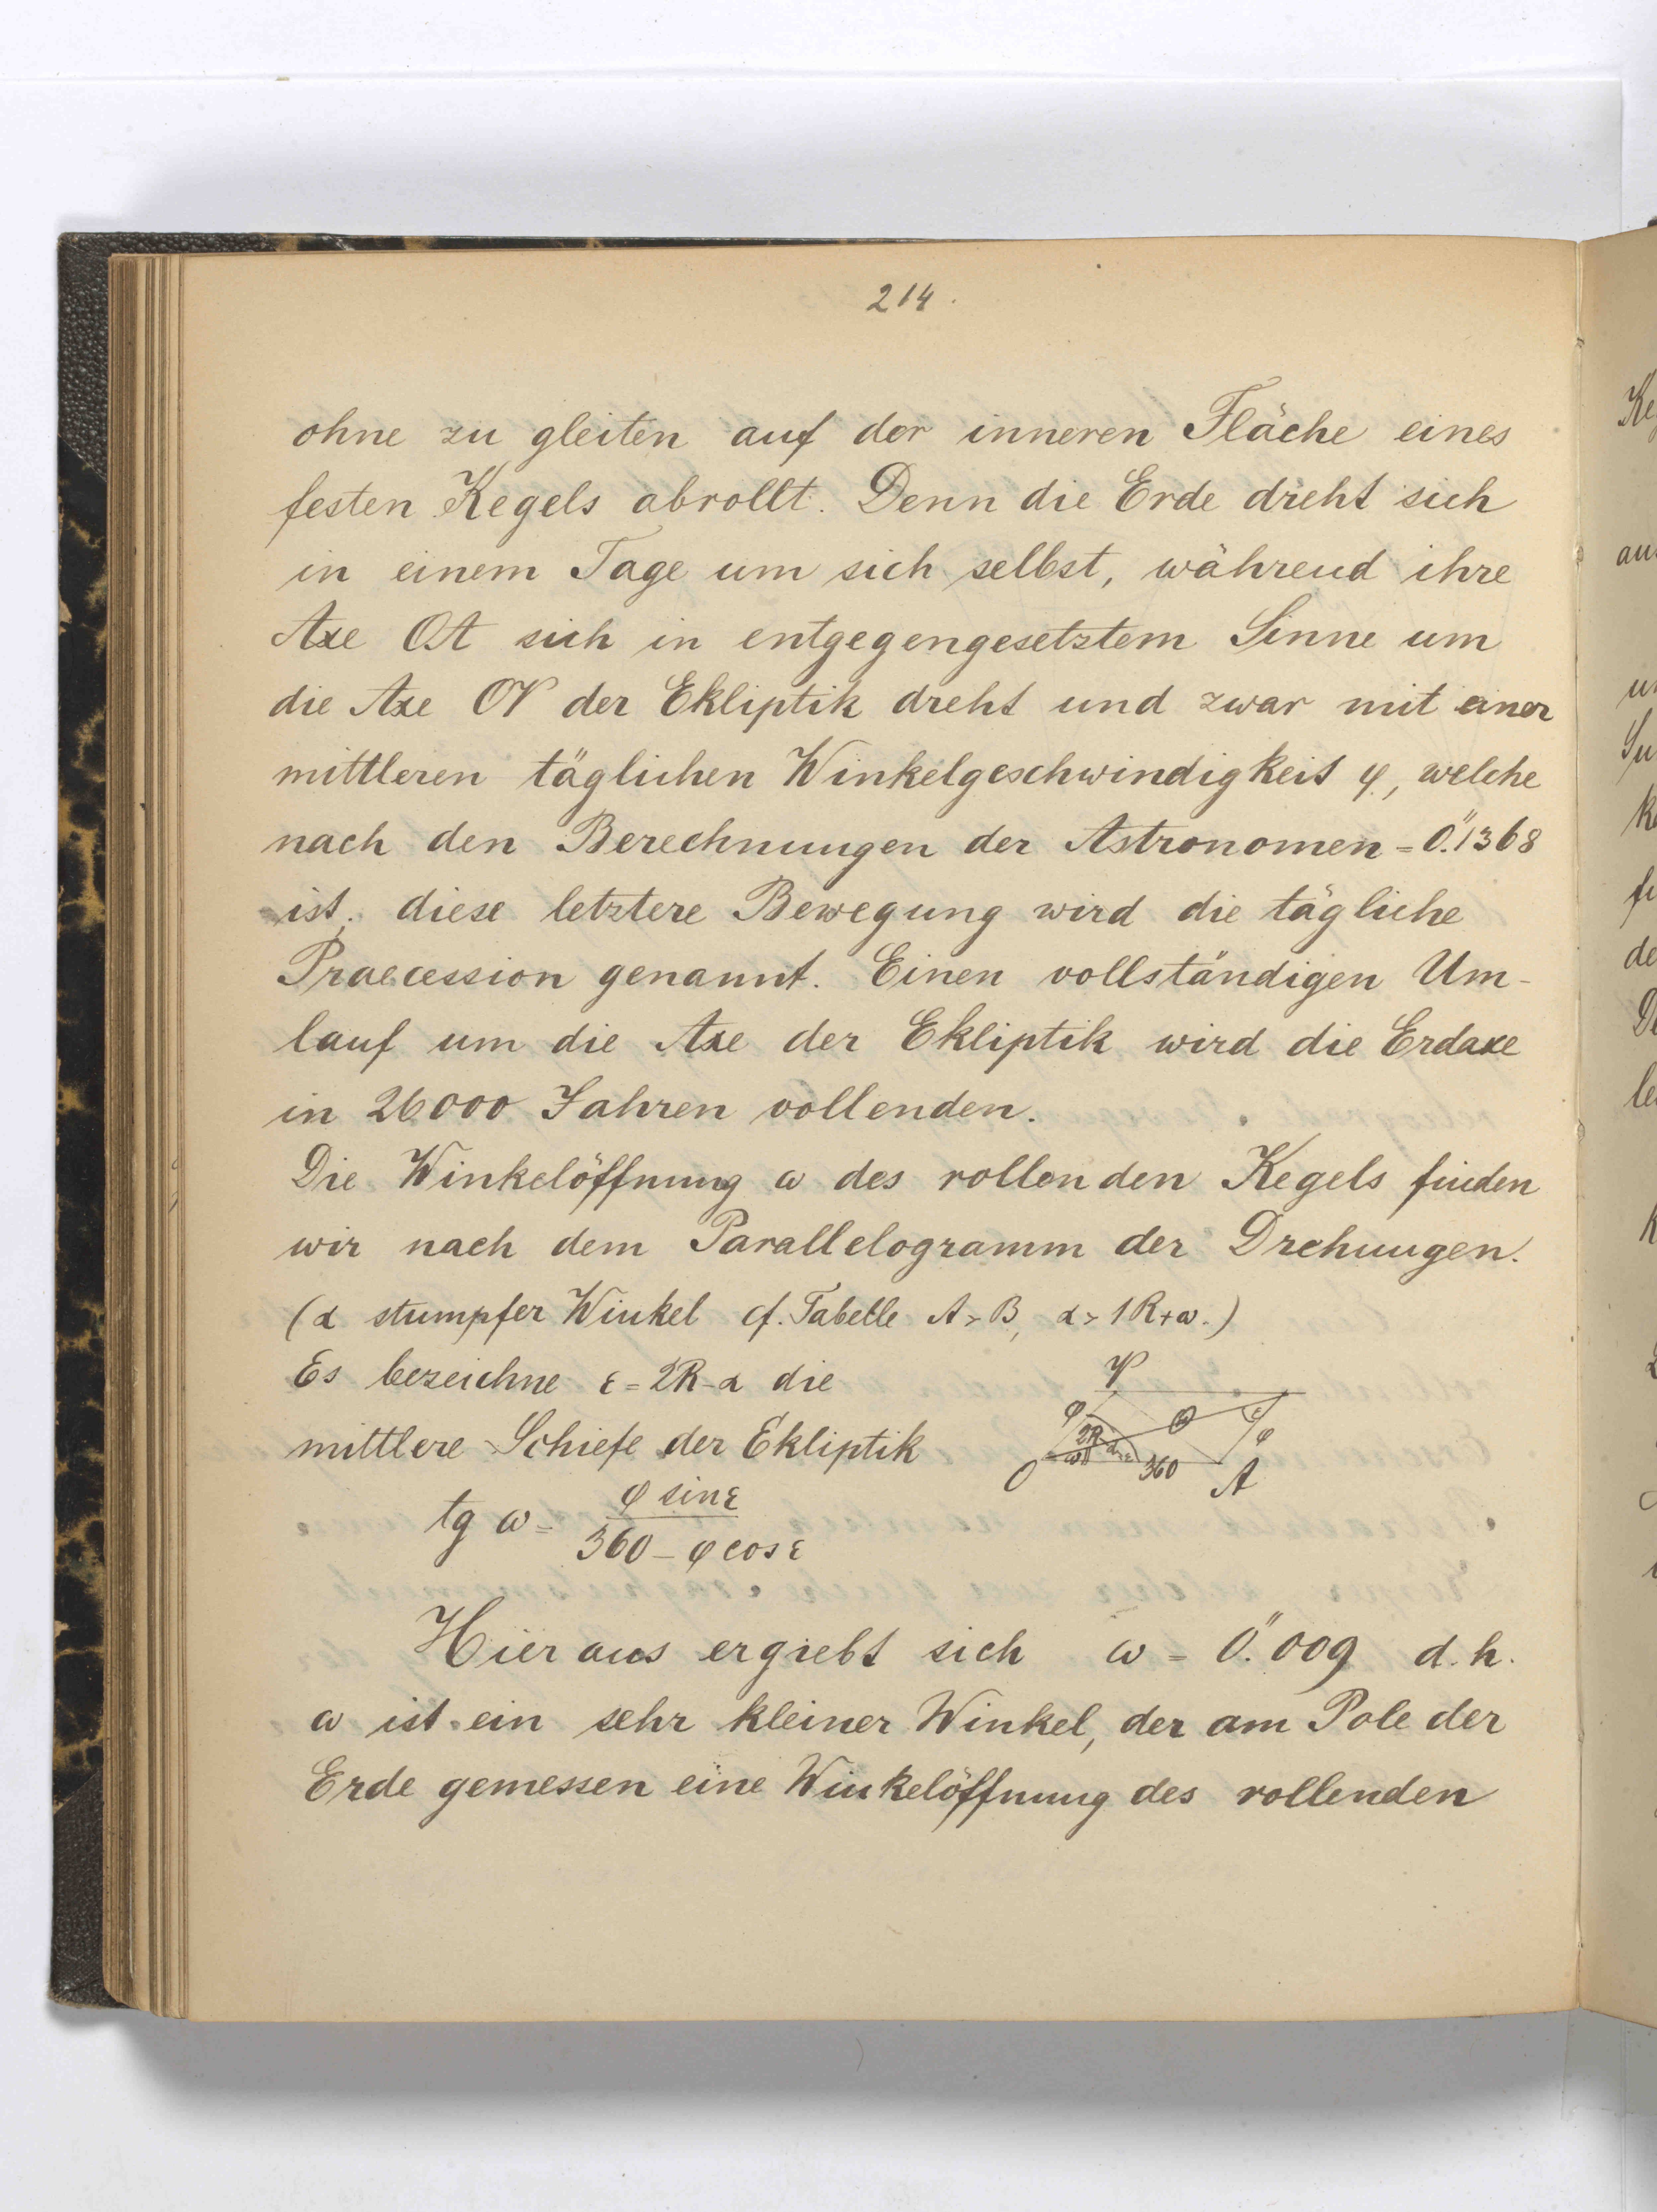 214.
ohne zu gleiten auf der inneren Fläche eines
festen Kegels abrollt. Denn die Erde dreht sich
in einem Tage um sich selbst, während ihre
Axe OA sich in entgegengesetztem Sinne um
die Axe OV der Ekliptik dreht und zwar mit einer
mittleren täglichen Winkelgeschwindigkeit φ, welche
nach den Berechnungen der Astronomen = 0."1368
ist; diese letztere Bewegung wird die tägliche
Praecession genannt. Einen vollständigen Um-
lauf um die Axe der Ekliptik wird die Erdaxe
in 26000 Jahren vollenden.
Die Winkelöffnung ω des rollenden Kegels finden
wir nach dem Parallelogramm der Drehungen.
(α stumpfer Winkel cf. Tabelle A > B, α > 1R+ω.)
Es bezeichne ε = 2R-α die
mittlere Schiefe der Ekliptik
φ ω ε φ 2R ω O 360 A
tg ω = φ sin ε
360 - φ cos ε
Hieraus ergiebt sich ω = 0."009 d.h.
ω ist ein sehr kleiner Winkel, der am Pole der
Erde gemessen eine Winkelöffnung des rollenden